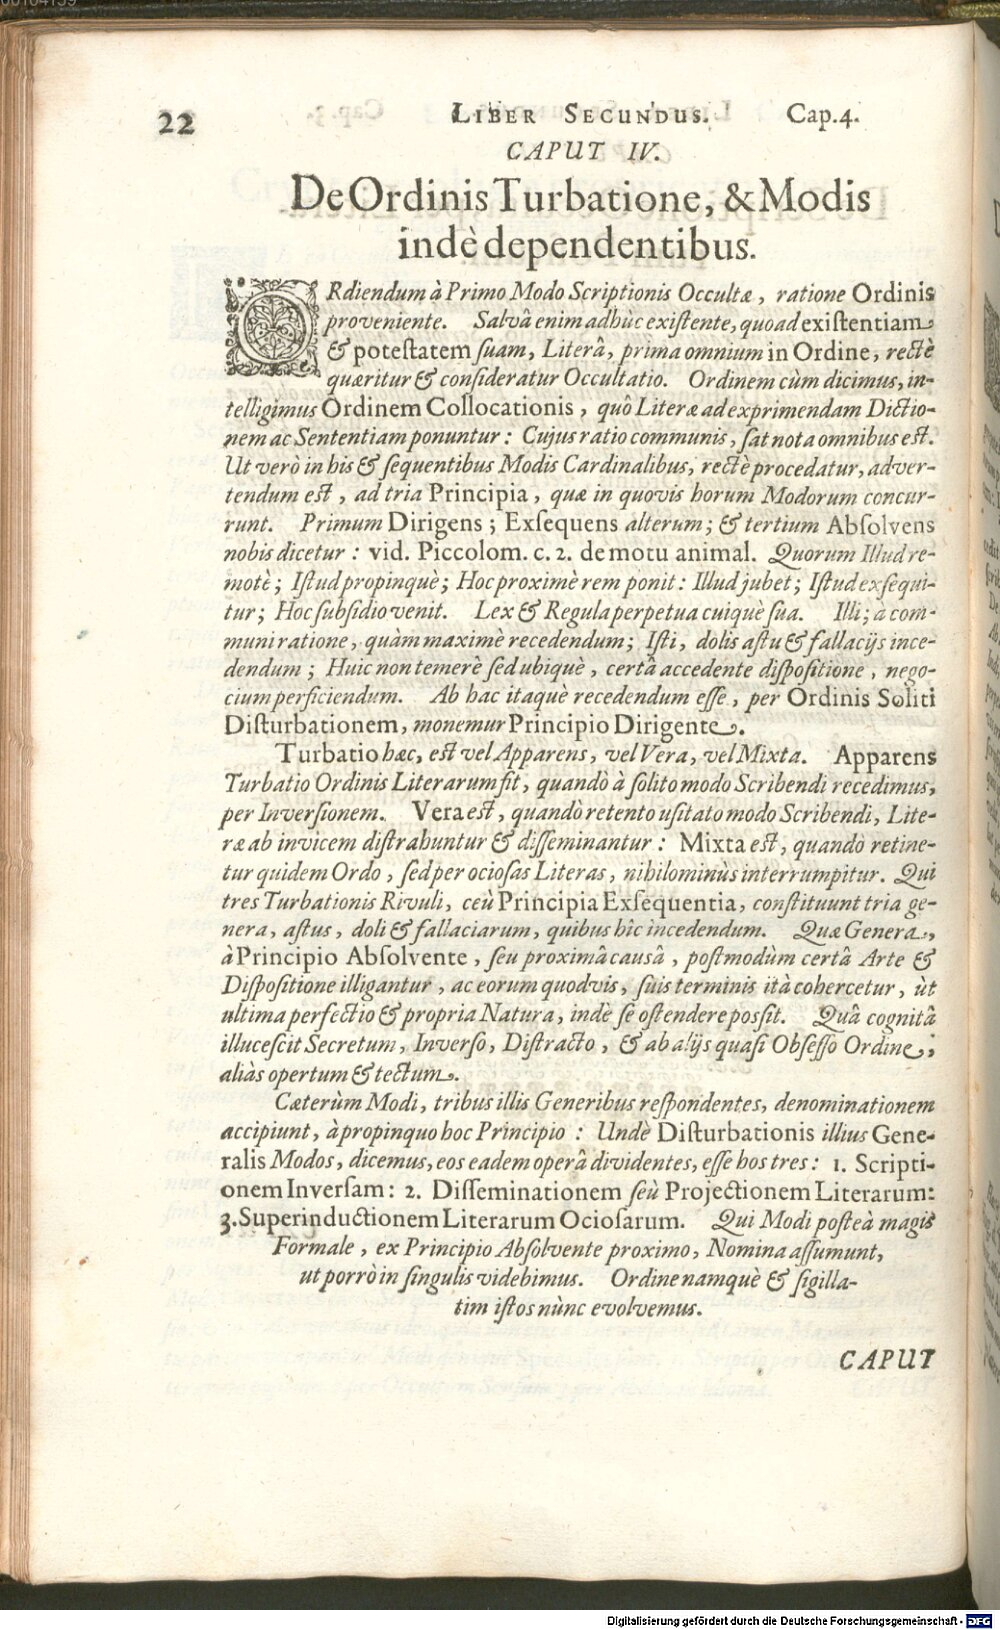 22 LIBER SECUNDUS. Cap.4.
CAPUT IV.
De Ordinis Turbatione, & Modis
indè dependentibus.
ORdiendum à Primo Modo Scriptionis Occultæ, ratione Ordinis
proveniente. Salvâ enim adhùc existente, quoad existentiam
& potestatem suam, Literâ, prima omnium in Ordine, rectè
quæritur & consideratur Occultatio. Ordinem cùm dicimus, in-
telligimus Ordinem Collocationis, quô Literæ ad exprimendam Dictio-
nem ac Sententiam ponuntur: Cujus ratio communis, sat nota omnibus est.
Ut verò in his & sequentibus Modis Cardinalibus, rectè procedatur, adver-
tendum est, ad tria Principia, quæ in quovis horum Modorum concur-
runt. Primum Dirigens; Exsequens alterum; & tertium Absolvens
nobis dicetur: vid. Piccolom. c. 2. de motu animal. Quorum Illud re-
motè; Istud propinquè; Hoc proximè rem ponit: Illud jubet; Istud exsequi-
tur; Hoc subsidio venit. Lex & Regula perpetua cuiquè sua. Illi; à com-
muni ratione, quàm maximè recedendum; Isti, dolis astu & fallacijs ince-
dendum; Huic non temerè sed ubiquè, certâ accedente dispositione, nego-
cium perficiendum. Ab hac itaquè recedendum esse, per Ordinis Soliti
Disturbationem, monemur Principio Dirigente.
Turbatio hæc, est vel Apparens, vel Vera, vel Mixta. Apparens
Turbatio Ordinis Literarum fit, quandò à solito modo Scribendi recedimus,
per Inversionem. Vera est, quandò retento usitato modo Scribendi, Lite-
ræ ab invicem distrahuntur & disseminantur: Mixta est, quandò retine-
tur quidem Ordo, sed per ociosas Literas, nihilominùs interrumpitur. Qui
tres Turbationis Rivuli, ceù Principia Exsequentia, constituunt tria ge-
nera, astus, doli & fallaciarum, quibus hîc incedendum. Quæ Genera,
à Principio Absolvente, seu proximâ causâ, postmodùm certâ Arte &
Dispositione illigantur, ac eorum quodvis, suis terminis ità cohercetur, ùt
ultima perfectio & propria Natura, indè se ostendere possit. Quâ cognitâ
illucescit Secretum, Inverso, Distracto, & ab alijs quasi Obsesso Ordine,
aliàs opertum & tectum.
Cæterùm Modi, tribus illis Generibus respondentes, denominationem
accipiunt, à propinquo hoc Principio: Undè Disturbationis illius Gene-
ralis Modos, dicemus, eos eadem operâ dividentes, esse hos tres: 1. Scripti-
onem Inversam: 2. Disseminationem seù Projectionem Literarum:
3. Superinductionem Literarum Ociosarum. Qui Modi posteà magis
Formale, ex Principio Absolvente proximo, Nomina assumunt,
ut porrò in singulis videbimus. Ordine namquè & sigilla-
tim istos nùnc evolvemus.
CAPUT
Digitalisierung gefördert durch die Deutsche Forschungsgemeinschaft - DFG